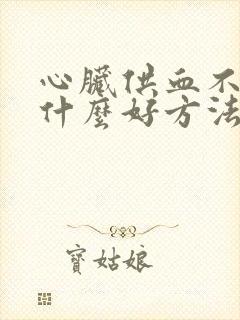 心臟供血不
什麼好方法
寶姑娘